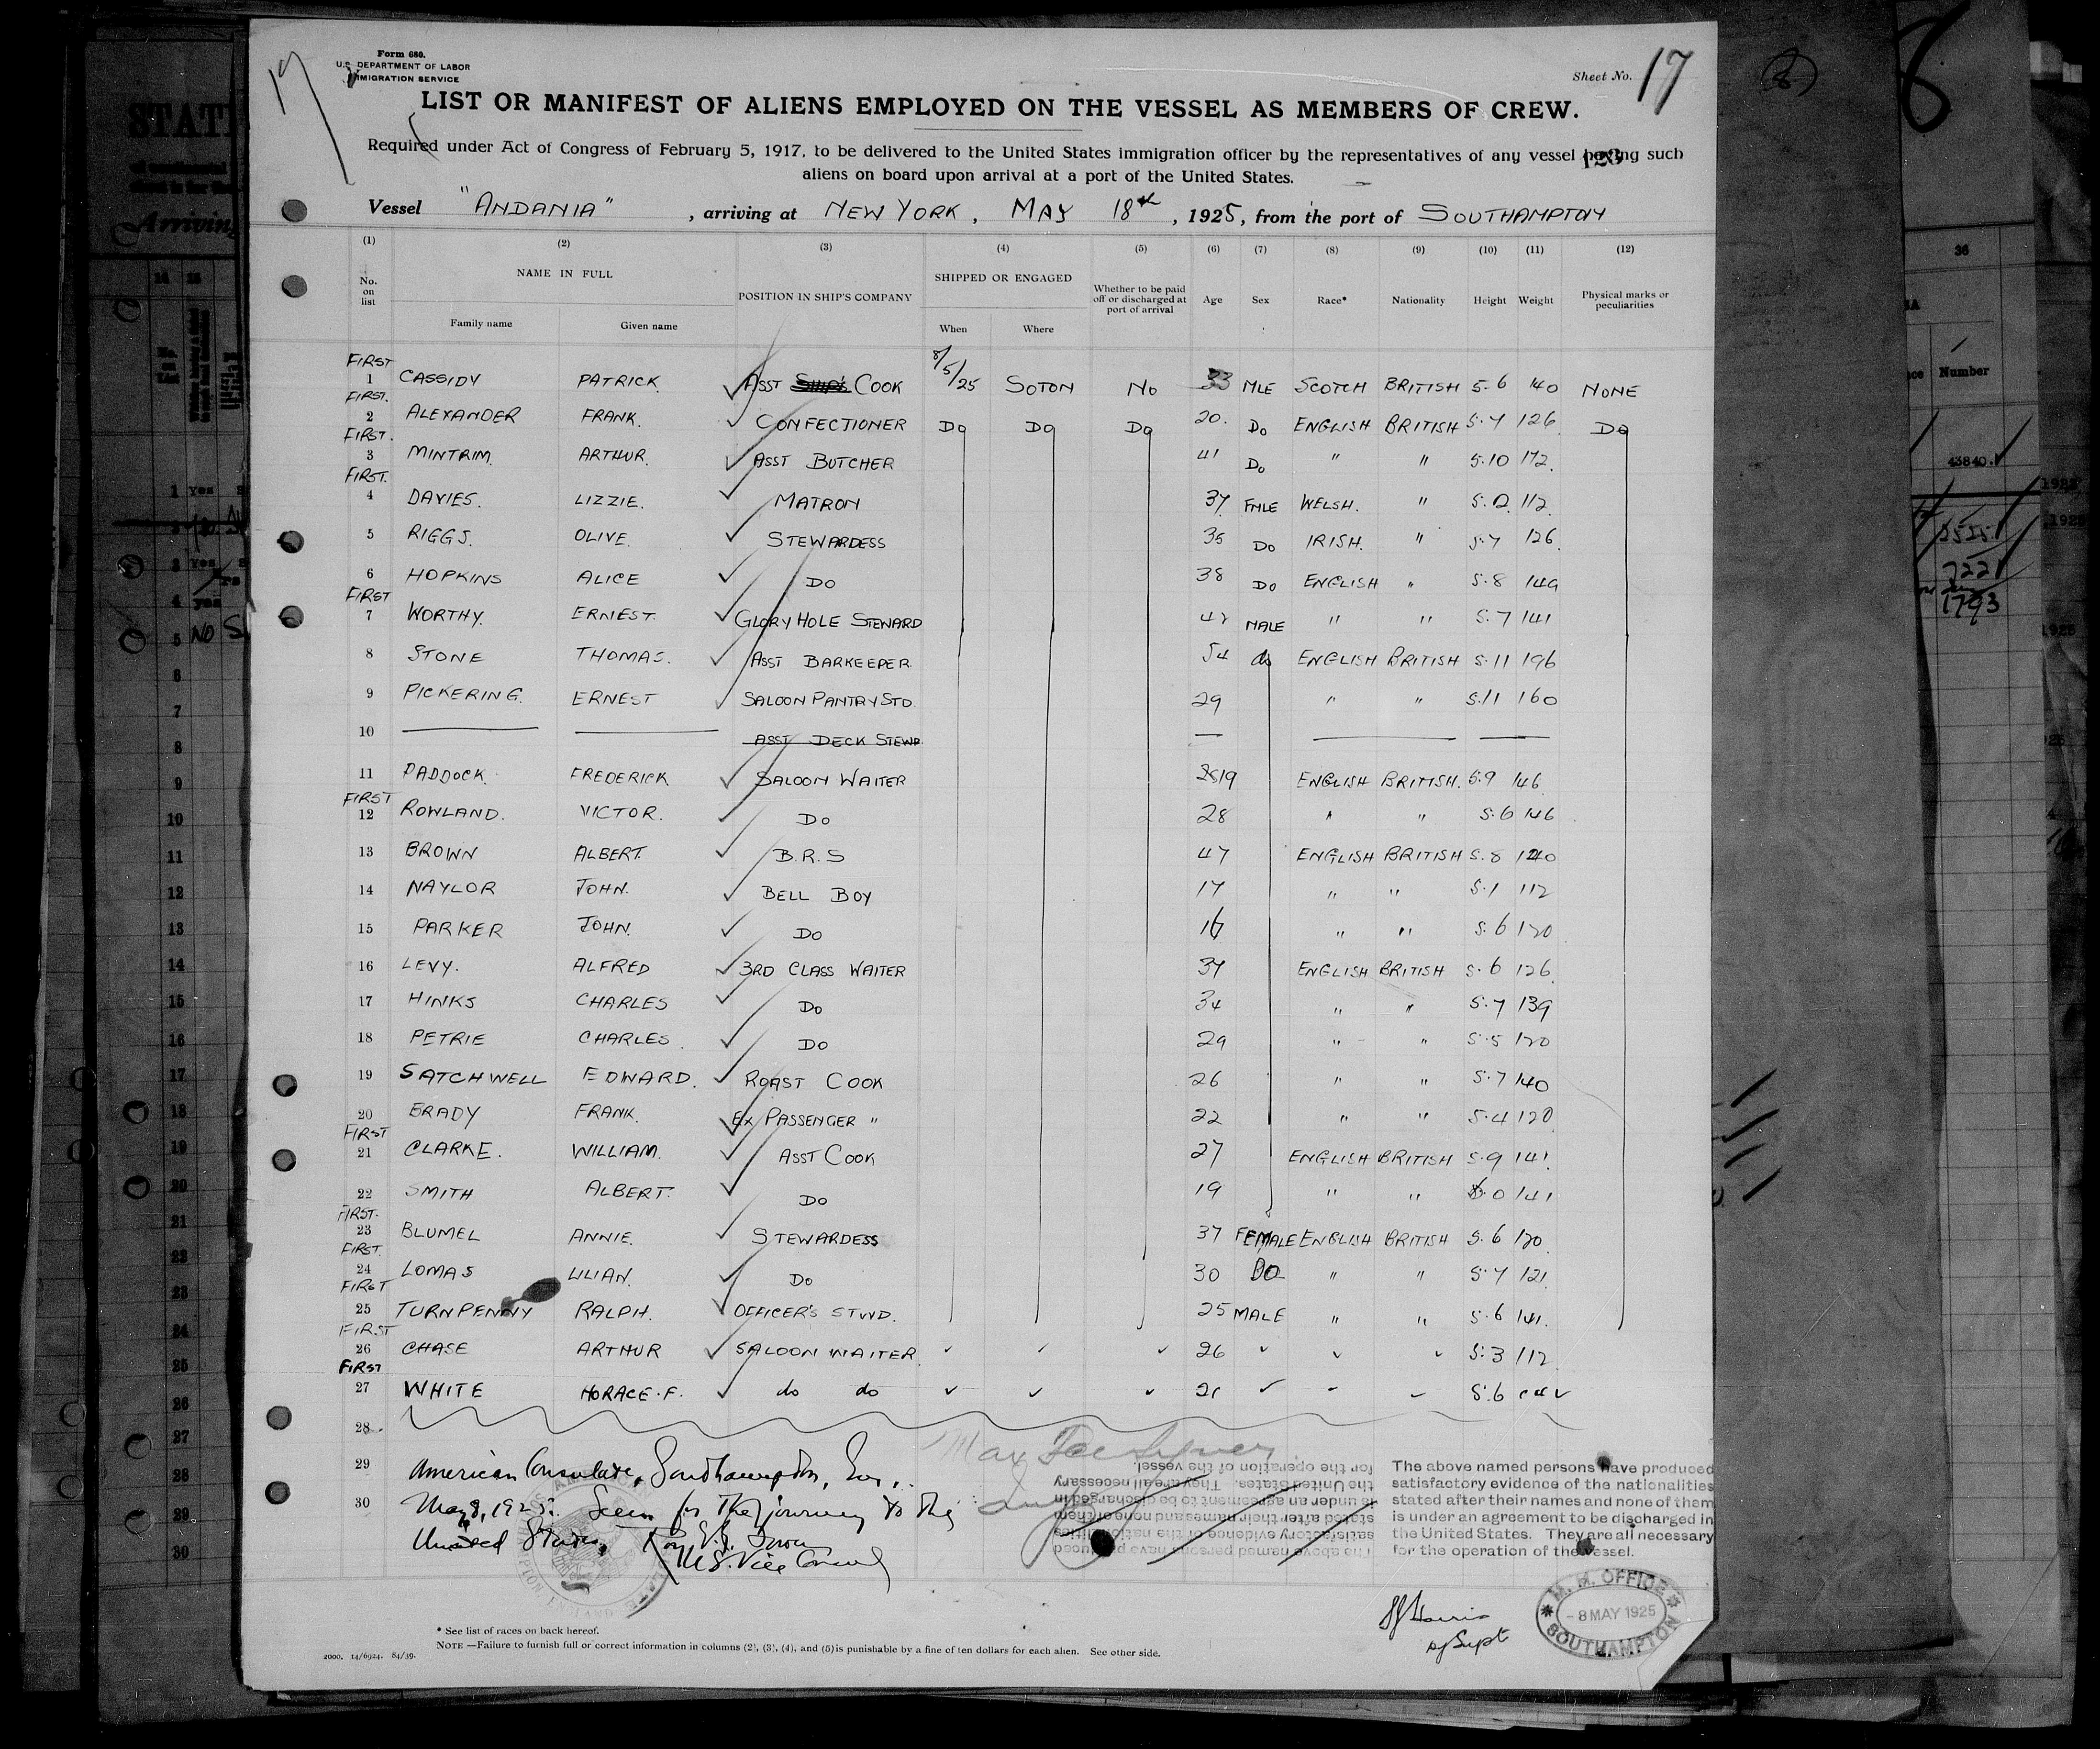 Form 680.
U.S. DEPARTMENT OF LABOR
IMMIGRATION SERVICE
17
Sheet No. 17
LIST OR MANIFEST OF ALIENS EMPLOYED ON THE VESSEL AS MEMBERS OF CREW.
Required under Act of Congress of February 5, 1917, to be delivered to the United States immigration officer by the representatives of any vessel having such
aliens on board upon arrival at a port of the United States.
123
Vessel "ANDANIA", arriving at NEW YORK, MAY 18th, 1925, from the port of SOUTHAMPTON
(1) (2) (3) (4) (5) (6) (7) (8) (9) (10) (11) (12)
No. on list NAME IN FULL POSITION IN SHIP'S COMPANY SHIPPED OR ENGAGED Whether to be paid off or discharged at port of arrival Age Sex Race* Nationality Height Weight Physical marks or peculiarities
Family name Given name When Where
FIRST
1 CASSIDY PATRICK ASST SHIP'S COOK 8/5/25 SOTON NO 33 MLE SCOTCH BRITISH 5.6 140 NONE
FIRST.
2 ALEXANDER FRANK. CONFECTIONER DO DO DO 20. DO ENGLISH BRITISH 5.7 126 DO
FIRST.
3 MINTRIM. ARTHUR. ASST BUTCHER 41 DO " " 5.10 172.
FIRST.
4 DAVIES. LIZZIE. MATRON 37 FMLE WELSH. " 5.2 112.
5 RIGGS. OLIVE. STEWARDESS 35 DO IRISH. " 5.7 126.
6 HOPKINS ALICE DO 38 DO ENGLISH " 5.8 149
FIRST
7 WORTHY. ERNEST. GLORY HOLE STEWARD 42 MALE " " 5.7 141
8 STONE THOMAS. ASST BARKEEPER 54 do ENGLISH BRITISH 5.11 196
9 PICKERING. ERNEST SALOON PANTRY STD 29 " " 5.11 160
10 ASST DECK STEWD
11 PADDOCK. FREDERICK SALOON WAITER 19 ENGLISH BRITISH. 5.9 146.
FIRST
12 ROWLAND. VICTOR. DO 28 " " 5.6 146
13 BROWN ALBERT. B.R.S 47 ENGLISH BRITISH 5.8 120
14 NAYLOR JOHN. BELL BOY 17 " " 5.1 112
15 PARKER JOHN. DO 16 " " 5.6 120
16 LEVY. ALFRED 3RD CLASS WAITER 37 ENGLISH BRITISH 5.6 126
17 HINKS CHARLES DO 34 " " 5.7 139
18 PETRIE CHARLES. DO 29 " " 5.5 120
19 SATCHWELL EDWARD. ROAST COOK 26 " " 5.7 140
20 BRADY FRANK. EX PASSENGER " 22 " " 5.4 120
FIRST
21 CLARKE. WILLIAM. ASST COOK 27 ENGLISH BRITISH 5.9 141.
22 SMITH ALBERT. DO 19 " " 6.0 141
FIRST.
23 BLUMEL ANNIE. STEWARDESS 37 FEMALE ENGLISH BRITISH 5.6 120.
FIRST.
24 LOMAS LILIAN. DO 30 DO " " 5.7 121
FIRST
25 TURNPENNY RALPH. OFFICER'S STWD. 25 MALE " " 5.6 141.
FIRST
26 CHASE ARTHUR SALOON WAITER. 26 5.3 112
FIRST
27 WHITE HORACE.F. do do 21 5.6
28
29
30
American Consulate, Southampton, Eng.,
May 8, 1925. Seen for the journey to the
United States,
U.S. Vice Consul
The above named persons have produced
satisfactory evidence of the nationalities
stated after their names and none of them
is under an agreement to be discharged in
the United States. They are all necessary
for the operation of the vessel.
The above named persons have produced
satisfactory evidence of the nationalities
stated after their names and none of them
is under an agreement to be discharged in
the United States. They are all necessary
for the operation of the vessel.
M. M. OFFICE
- 8 MAY 1925
SOUTHAMPTON
* See list of races on back hereof.
NOTE —Failure to furnish full or correct information in columns (2), (3), (4), and (5) is punishable by a fine of ten dollars for each alien. See other side.
2000. 14/6924. 84/39.